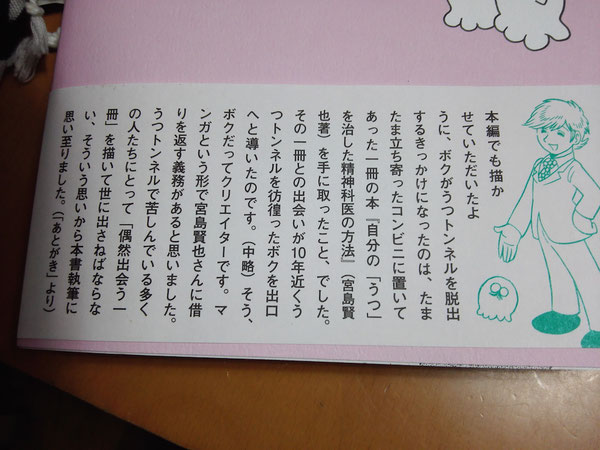 本編でも描か
せていただいたよ
うに、ボクがうつトンネルを脱出
するきっかけになったのは、たま
たま立ち寄ったコンビニに置いて
あった一冊の本『自分の「うつ」
を治した精神科医の方法』(宮島賢
也著)を手に取ったこと、でした。
その一冊との出会いが10年近くう
つトンネルを彷徨ったボクを出口
へと導いたのです。(中略)そう、
ボクだってクリエイターです。マ
ンガという形で宮島賢也さんに借
りを返す義務があると思いました。
うつトンネルで苦しんでいる多く
の人たちにとって「偶然出会う一
冊」を描いて世に出さねばならな
い、そういう思いから本書執筆に
思い至りました。(「あとがき」より)